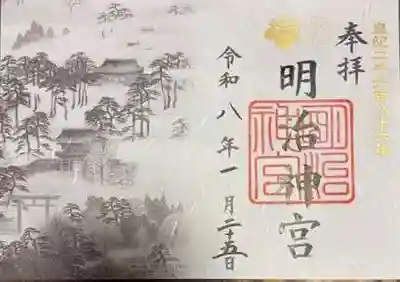 皇紀二千六百八十六年
奉拝
明治神宮
明治神宮
令和八年一月二十五日